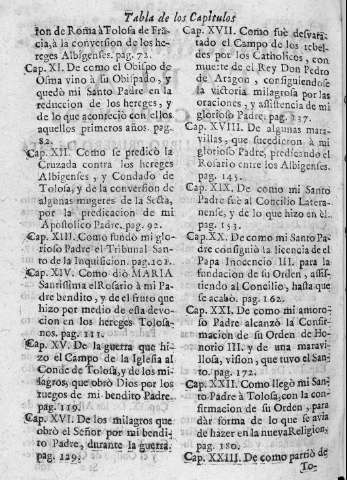 Tabla de los Capitulos
sion de Roma à Tolosa de Frã-
cia, à la conversion de los he-
reges Albigenses. pag. 72.
Cap. XI. De como el Obispo de
Osma vino à su Obispado, y
quedò mi Santo Padre en la
reduccion de los hereges, y
de lo que aconteciò con ellos
aquellos primeros años. pag.
82.
Cap. XII. Como se predicò la
Cruzada contra los hereges
Albigenses, y Condado de
Tolosa, y de la conversion de
algunas mugeres de la Secta,
por la predicacion de mi
Apostolico Padre. pag. 92.
Cap. XIII. Como fundò mi glo-
rioso Padre el Tribunal San-
to de la Inquisicion. pag. 102.
Cap. XIV. Como diò MARIA
Santissima el Rosario à mi Pa-
dre bendito, y de el fruto que
hizo por medio de esta devo-
cion en los hereges Tolosa-
nos. pag. 111.
Cap. XV. De la guerra que hi-
zo el Campo de la Iglesia al
Conde de Tolosa, y de los mi-
lagros, que obrò Dios por los
ruegos de mi bendito Padre.
pag. 119.
Cap. XVI. De los milagros que
obrò el Señor por mi bendi-
to Padre, durante la guerra.
pag. 129.
Cap. XVII. Como fuè desvara-
tado el Campo de los rebel-
des por los Catholicos, con
muerte de el Rey Don Pedro
de Aragon, consiguiendose
la victoria milagrosa por las
oraciones, y assistencia de mi
glorioso Padre. pag. 137.
Cap. XVIII. De algunas mara-
villas, que sucedieron à mi
glorioso Padre, predicando el
Rosario entre los Albigenses.
pag. 145.
Cap. XIX. De como mi Santo
Padre fuè al Concilio Latera-
nense, y de lo que hizo en èl.
pag. 153.
Cap. XX. De como mi Santo Pa-
dre consiguiò la licencia de el
Papa Inocencio III. para la
fundacion de su Orden, assis-
tiendo al Concilio, hasta que
se acabò. pag. 162.
Cap. XXI. De como mi amoro-
so Padre alcanzò la Confir-
macion de su Orden de Ho-
norio III. y de una maravi-
llosa, vision, que tuvo el San-
to. pag. 172.
Cap. XXII. Como llegò mi San-
to Padre à Tolosa, con la con-
firmacion de su Orden, para
dàr forma de lo que se avia
de hazer en la nueva Religion.
pag. 180.
Cap. XXIII. De como partiò de
To-